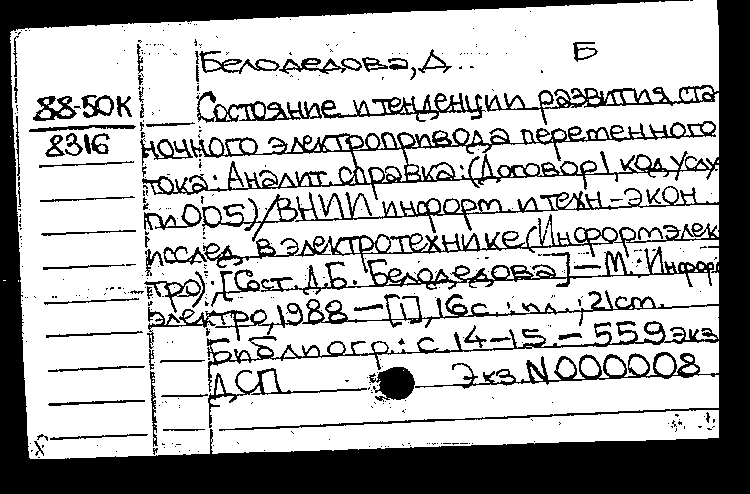 Б
Белодедова, Д..
88-50К
8316
Состояние и тенденции развития ста-
ночного электропривода переменного
тока: Аналит. справка: (Договор 1, код услу
ги 005) / ВНИИ информ. и техн.-экон
исслед. в электротехнике (Информэлек
тро); [Сост. Д.Б. Белодедова] — М.: Информ
электро, 1988 — [1], 16 с. : ил. ; 21 см.
Библиогр.: с. 14-15. — 559 экз
ДСП. Экз. N 000008.